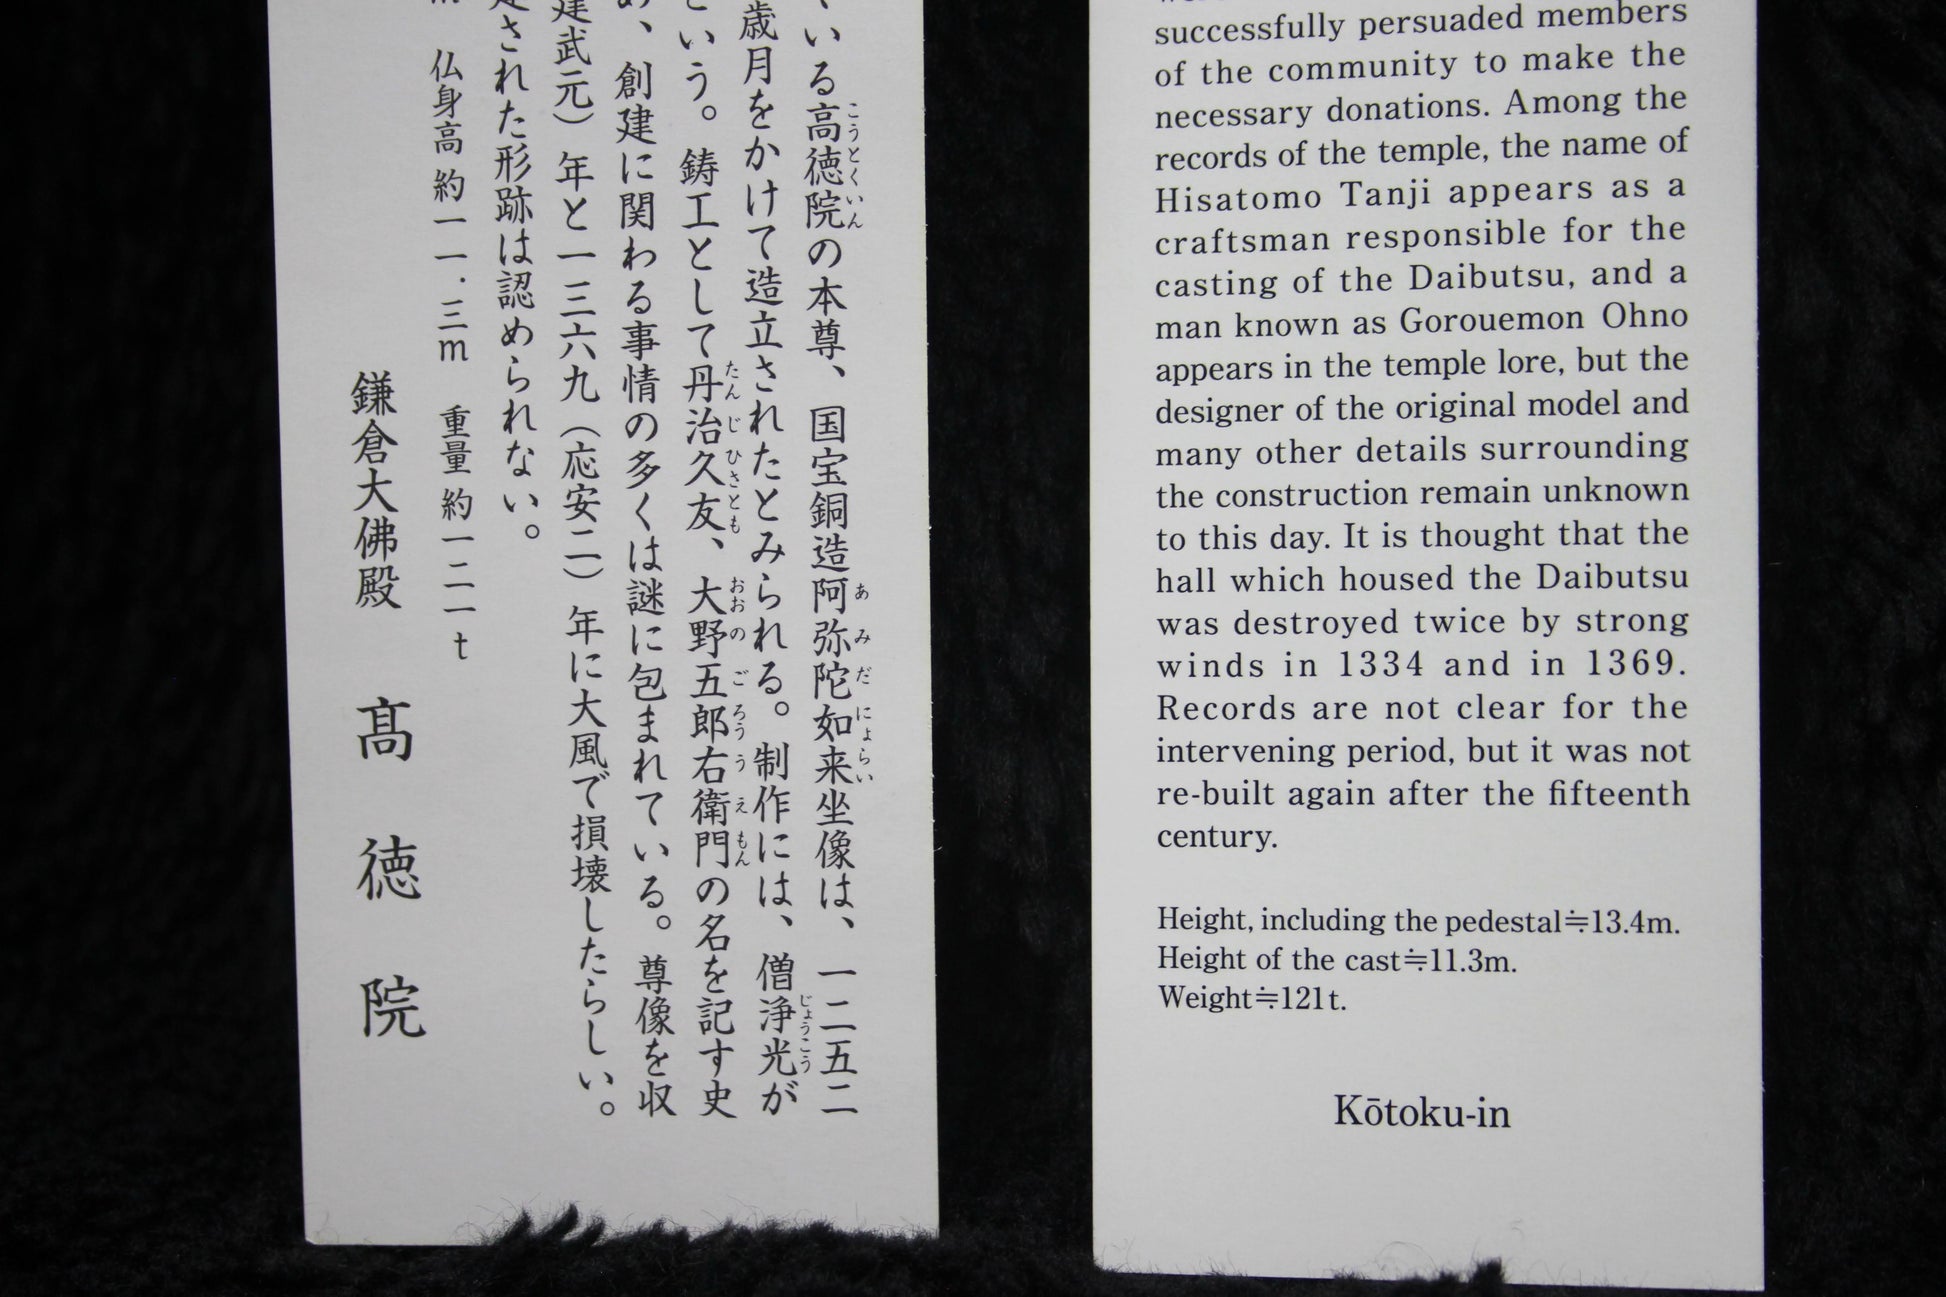 いる高徳院の本尊、国宝銅造阿弥陀如来坐像は、一二五二
こうとくいん
あみだにょらい
歳月をかけて造立されたとみられる。制作には、僧浄光が
じょうこう
という。鋳工として丹治久友、大野五郎右衛門の名を記す史
たんじひさとも
おおのごろううえもん
、創建に関わる事情の多くは謎に包まれている。尊像を収
建武元）年と一三六九（応安二）年に大風で損壊したらしい。
された形跡は認められない。
m 仏身高 約一一.三m 重量 約一二一t
鎌倉大佛殿 髙徳院
successfully persuaded members
of the community to make the
necessary donations. Among the
records of the temple, the name of
Hisatomo Tanji appears as a
craftsman responsible for the
casting of the Daibutsu, and a
man known as Gorouemon Ohno
appears in the temple lore, but the
designer of the original model and
many other details surrounding
the construction remain unknown
to this day. It is thought that the
hall which housed the Daibutsu
was destroyed twice by strong
winds in 1334 and in 1369.
Records are not clear for the
intervening period, but it was not
re-built again after the fifteenth
century.
Height, including the pedestal≒13.4m.
Height of the cast≒11.3m.
Weight≒121t.
Kōtoku-in